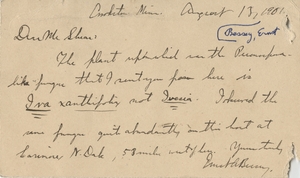 Crookston Minn. August 13, 1901.
Bessey, Ernst
Dear Mr. Shear:
The plant upon which was the Peronospora-
like fungus that I sent you from here is
Iva xanthifolia not Iresine. I observed the
same fungus quite abundantly on this host at
N. Dak, 58 miles west of here. Yours truly
Ernst A. Bessey.